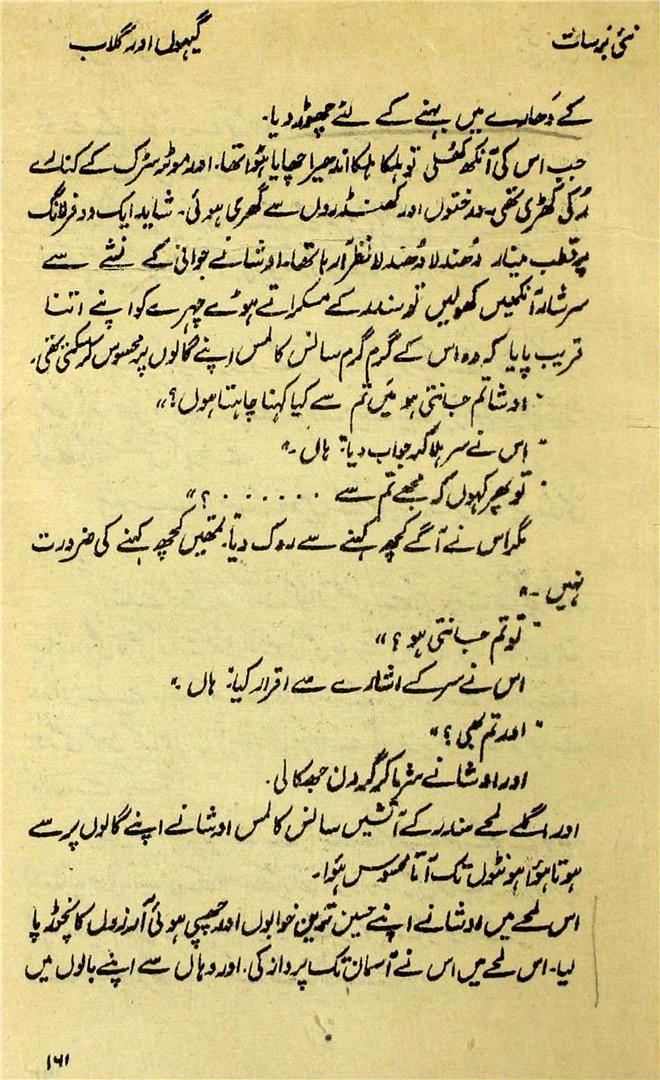 نئی برسات
گیہوں اور گلاب
کے دَھارے میں بہنے کے لئے چھوڑ دیا۔
جب اس کی آنکھ کھُلی تو ہلکا ہلکا اندھیرا چھایا ہؤا تھا۔ اور موٹر سڑک کے کنارے
رُکی کھڑی تھی۔ درختوں اور کھنڈروں سے گھری ہوئی۔ شاید ایک دو فرلانگ
پر قطب مینار دُھندلا دُھندلا نظر آ رہا تھا۔ اوشا نے جوانی کے نشے سے
سرشار آنکھیں کھولیں تو سندر کے مسکراتے ہوئے چہرے کو اپنے اتنا
قریب پایا کہ وہ اس کے گرم گرم سانس کا لمس اپنے گالوں پر محسوس کر سکتی تھی۔
"اوشا تم جانتی ہو میَں تم سے کیا کہنا چاہتا ہوں؟"
اس نے سر ہلا کر جواب دیا: ہاں۔"
"تو پھر کہوں کہ مجھے تم سے ۰۰۰۰۰۰؟"
مگر اس نے آگے کچھ کہنے سے روک دیا: تمھیں کچھ کہنے کی ضرورت
نہیں۔"
"تو تم جانتی ہو؟"
اس نے سر کے اشارے سے اقرار کیا: ہاں۔"
"اور تم بھی؟"
اور اوشا نے شرما کر گردن جھکا لی۔
اور اگلے لمحے سندر کے آتشیں سانس کا لمس اوشا نے اپنے گالوں پر سے
ہوتا ہؤا ہونٹوں تک آتا محسوس ہؤا۔
اس لمحے میں اوشا نے اپنے حسین ترین خوابوں اور چھپی ہوئی آرزوں کا نچوڑ پا
لیا۔ اس لمحے میں اس نے آسمان تک پرواز کی۔ اور وہاں سے اپنے بالوں میں
۱۶۱